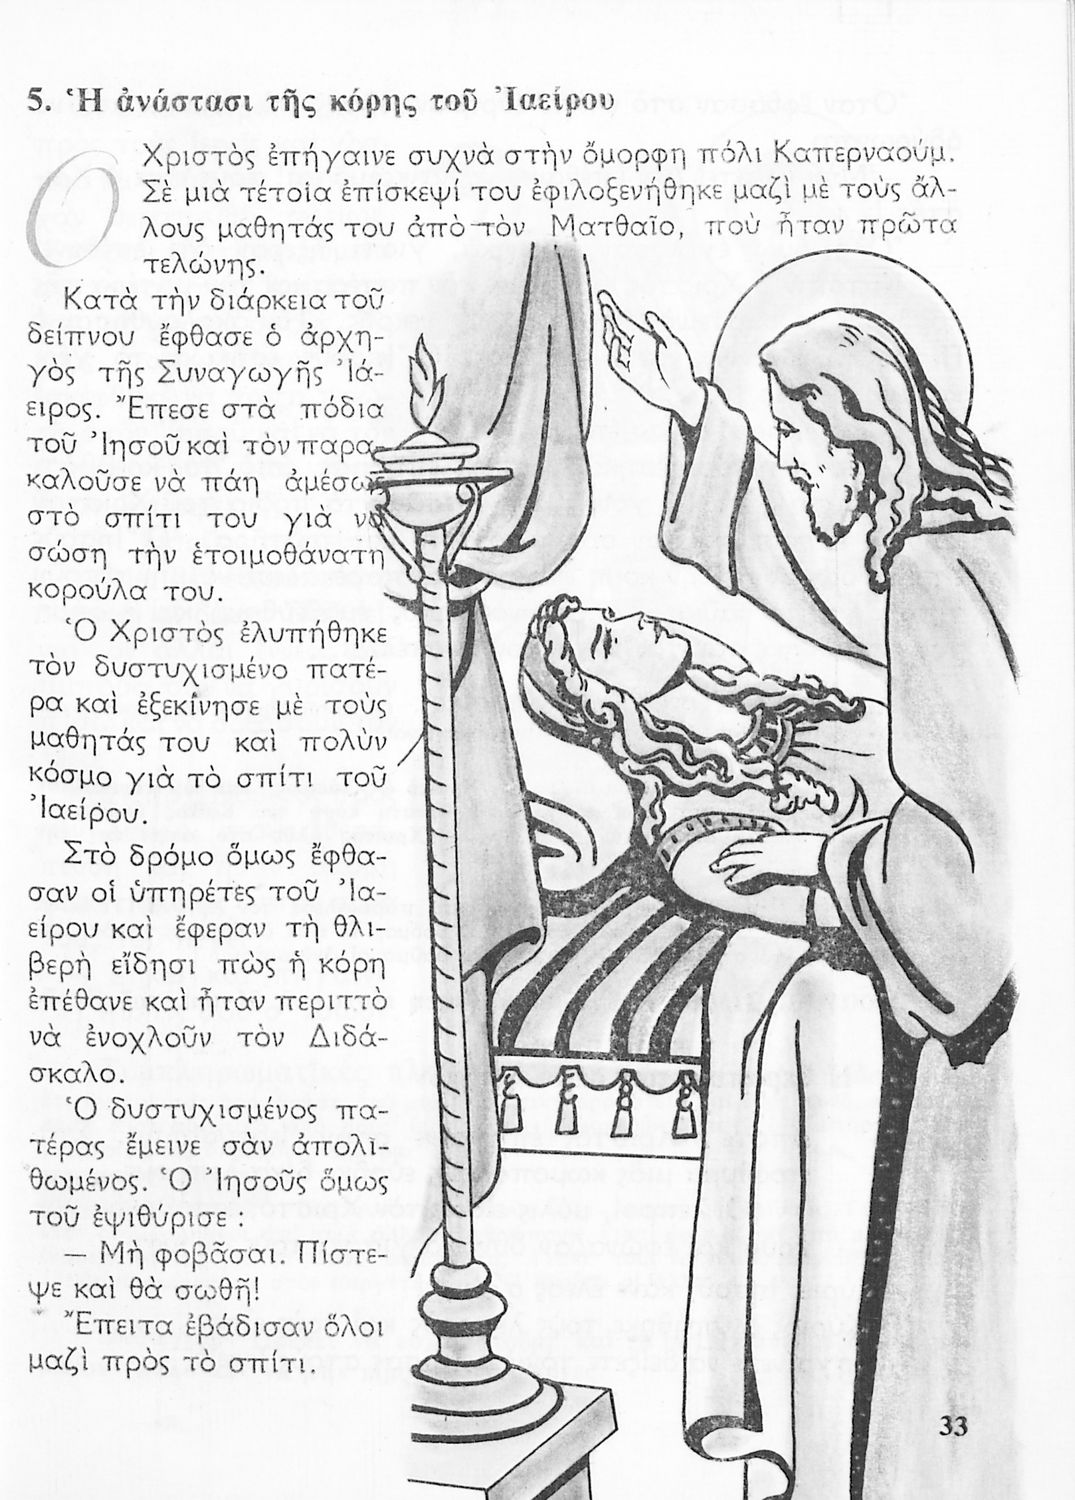 5. Ἡ ἀνάστασι τῆς κόρης τοῦ Ἰαείρου
Ὁ Χριστὸς ἐπήγαινε συχνὰ στὴν ὄμορφη πόλι Καπερναούμ.
Σὲ μιὰ τέτοια ἐπίσκεψί του ἐφιλοξενήθηκε μαζὶ μὲ τοὺς ἄλ-
λους μαθητάς του ἀπὸ τὸν Ματθαῖο, ποὺ ἦταν πρῶτα
τελώνης.
Κατὰ τὴν διάρκεια τοῦ
δείπνου ἔφθασε ὁ ἀρχη-
γὸς τῆς Συναγωγῆς Ἰά-
ειρος. Ἔπεσε στὰ πόδια
τοῦ Ἰησοῦ καὶ τὸν παρα-
καλοῦσε νὰ πάη ἀμέσως
στὸ σπίτι του γιὰ νὰ
σώση τὴν ἑτοιμοθάνατη
κορούλα του.
Ὁ Χριστὸς ἐλυπήθηκε
τὸν δυστυχισμένο πατέ-
ρα καὶ ἐξεκίνησε μὲ τοὺς
μαθητάς του καὶ πολὺν
κόσμο γιὰ τὸ σπίτι τοῦ
Ἰαείρου.
Στὸ δρόμο ὅμως ἔφθα-
σαν οἱ ὑπηρέτες τοῦ Ἰα-
είρου καὶ ἔφεραν τὴ θλι-
βερὴ εἴδησι πὼς ἡ κόρη
ἐπέθανε καὶ ἦταν περιττὸ
νὰ ἐνοχλοῦν τὸν Διδά-
σκαλο.
Ὁ δυστυχισμένος πα-
τέρας ἔμεινε σὰν ἀπολι-
θωμένος. Ὁ Ἰησοῦς ὅμως
τοῦ ἐψιθύρισε :
— Μὴ φοβᾶσαι. Πίστε-
ψε καὶ θὰ σωθῆ!
Ἔπειτα ἐβάδισαν ὅλοι
μαζὶ πρὸς τὸ σπίτι.
33